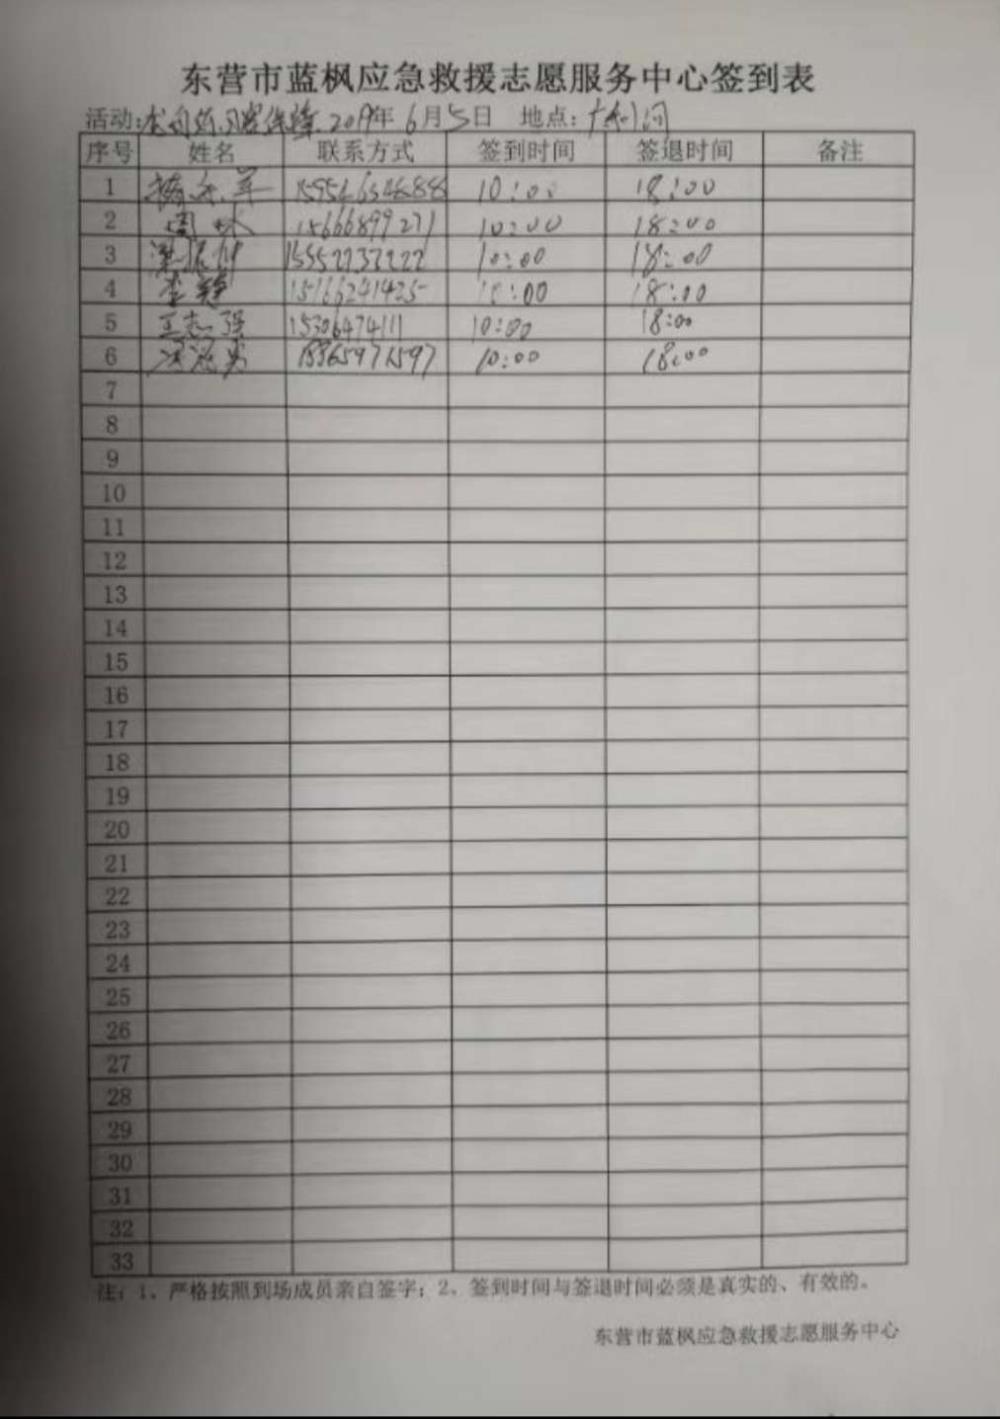 东营市蓝枫应急救援志愿服务中心签到表
活动: 2019年6月5日 地点:
序号 姓名 联系方式 签到时间 签退时间 备注
1 10:00 18:00
2 周林 15666899271 10:00 18:00
3 15552737222 10:00 18:00
4 李 15166241425 10:00 18:00
5 王志强 15306474111 10:00 18:00
6 10:00 18:00
7
8
9
10
11
12
13
14
15
16
17
18
19
20
21
22
23
24
25
26
27
28
29
30
31
32
33
注:1、严格按照到场成员亲自签字;2、签到时间与签退时间必须是真实的、有效的。
东营市蓝枫应急救援志愿服务中心